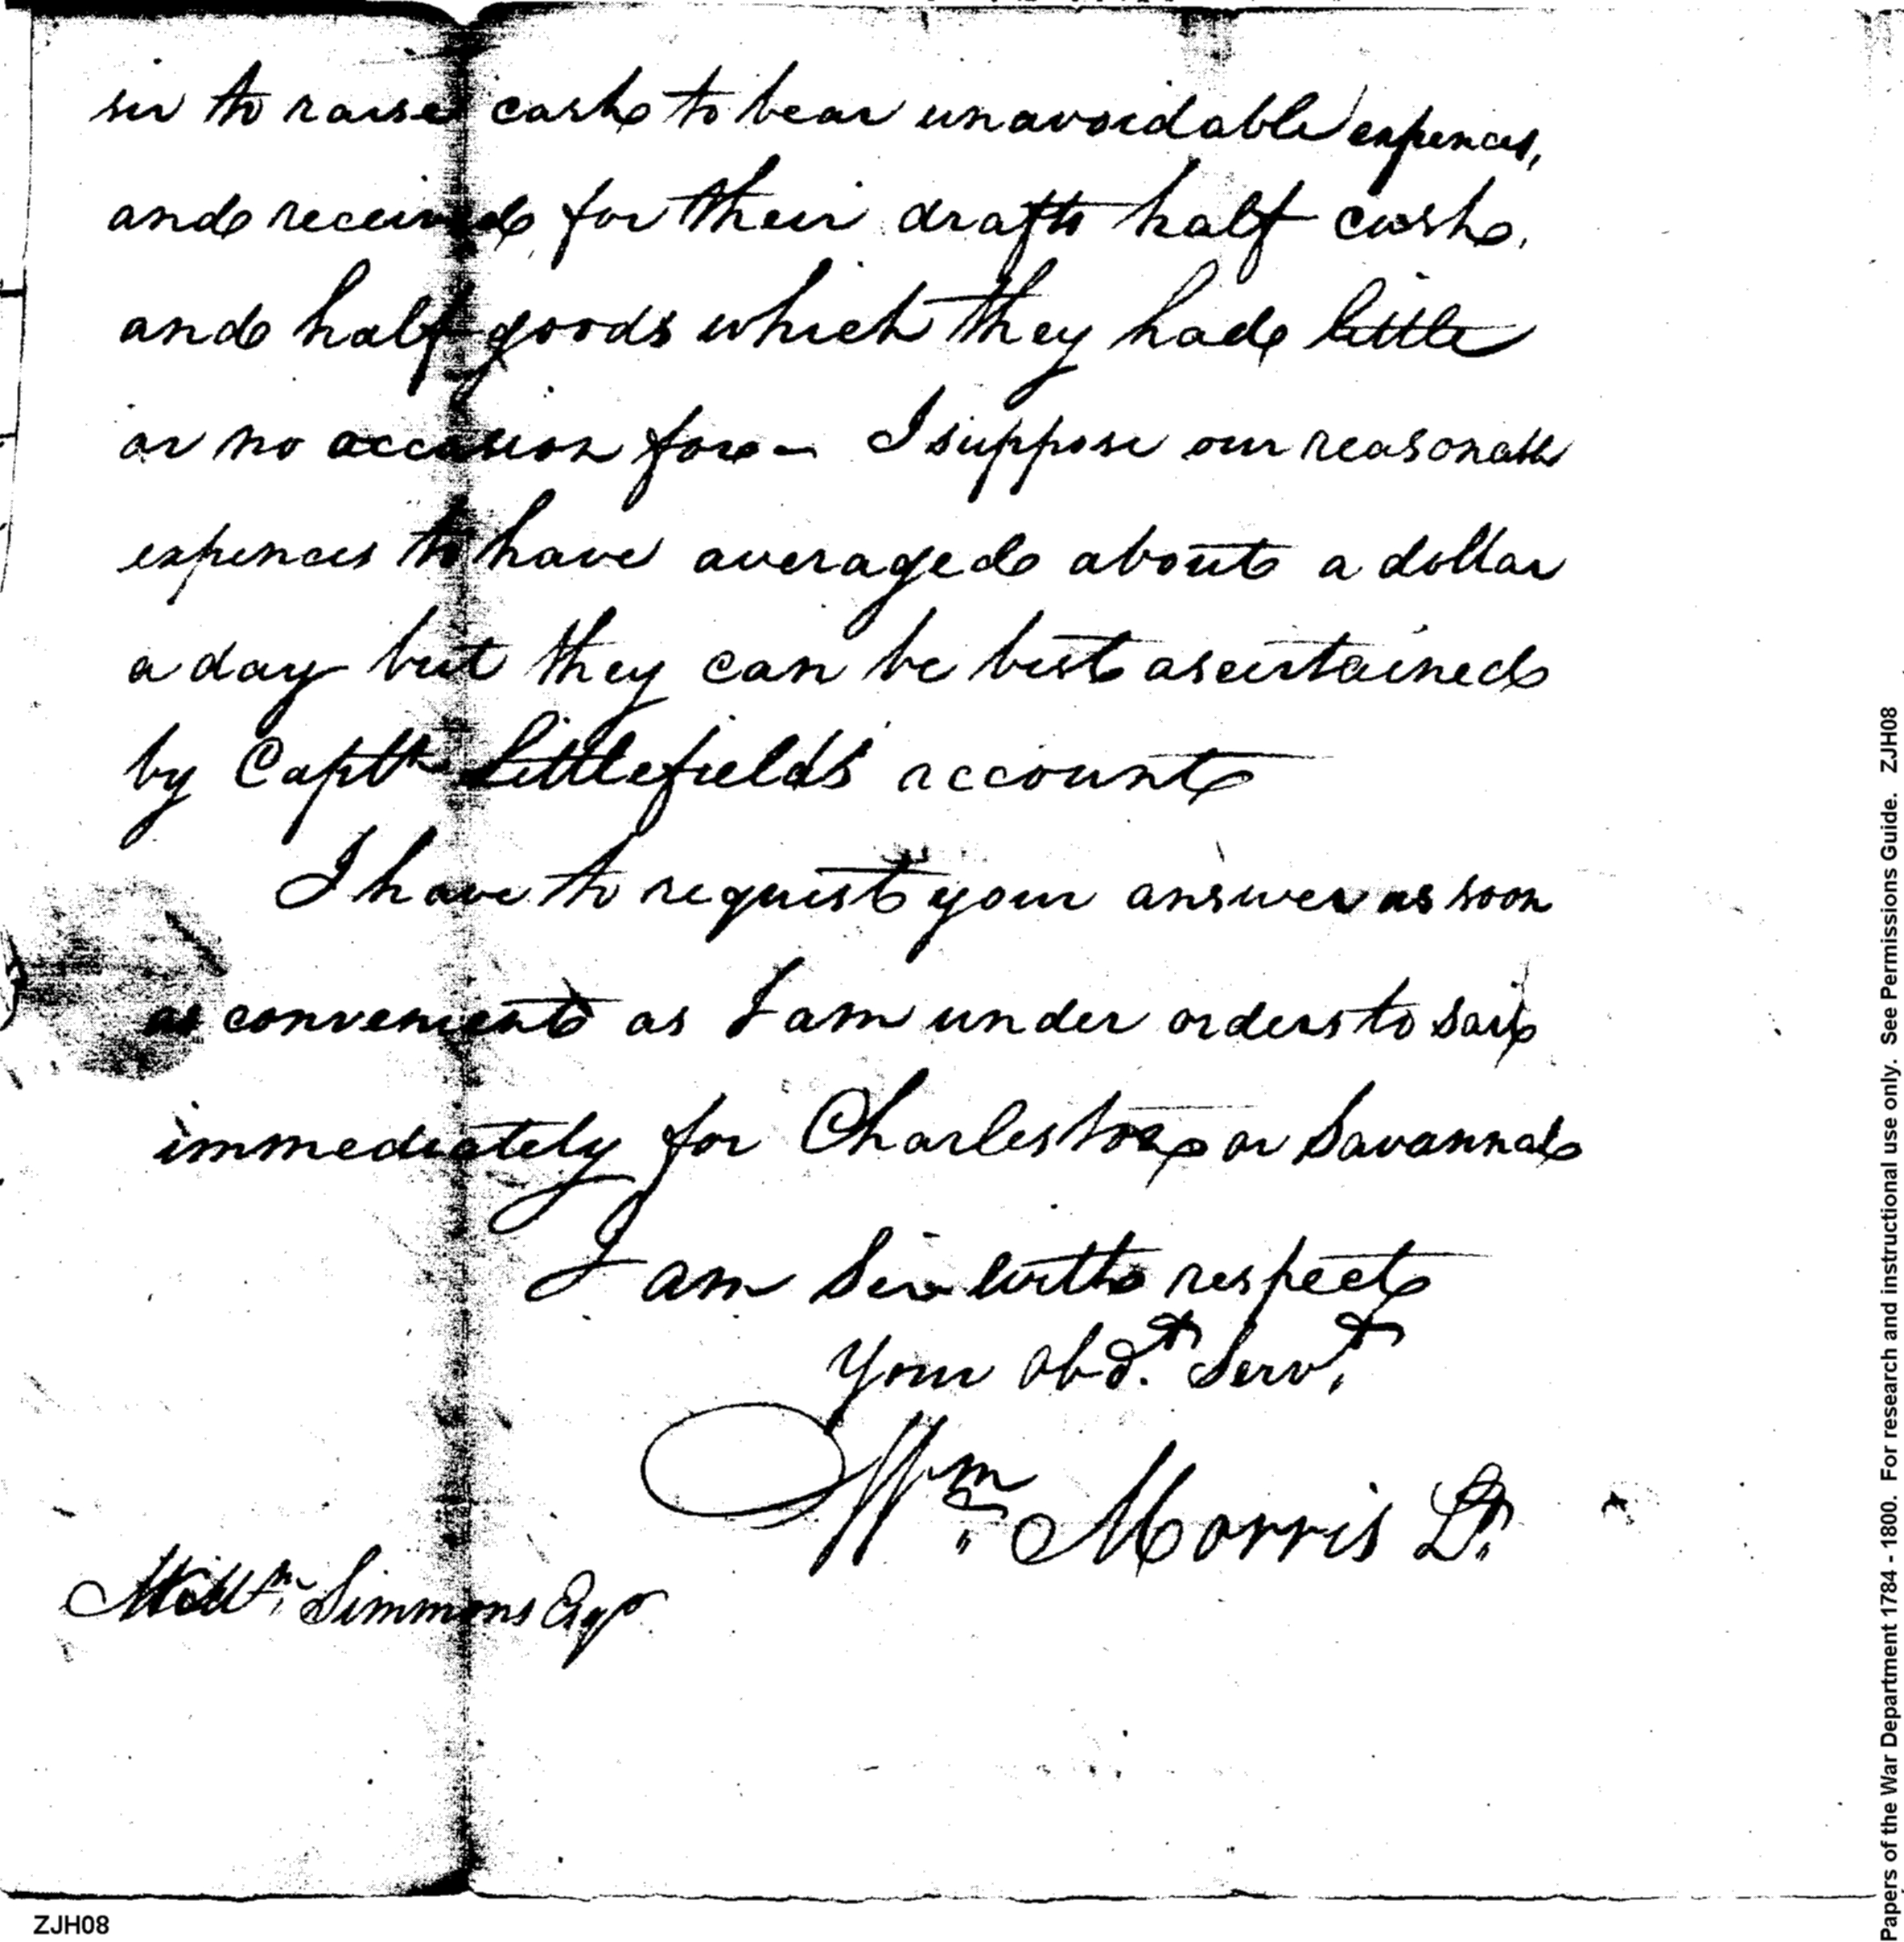 sir to raise cash to bear unavoidable expences,
and received for their drafts half cash,
and half goods which they had little
or no occasion for - I suppose our reasonable
expences to have averaged about a dollar
a day but they can be best ascertained
by Captn Littlefields account
I have to request your answer as soon
as convenient as I am under orders to sail
immediately for Charleston or Savannah
I am Sir with respect
Your obdt. Servt.
Wm. Morris Lt.
Wm. Simmons Esqr
ZJH08
Papers of the War Department 1784 - 1800. For research and instructional use only. See Permissions Guide. ZJH08